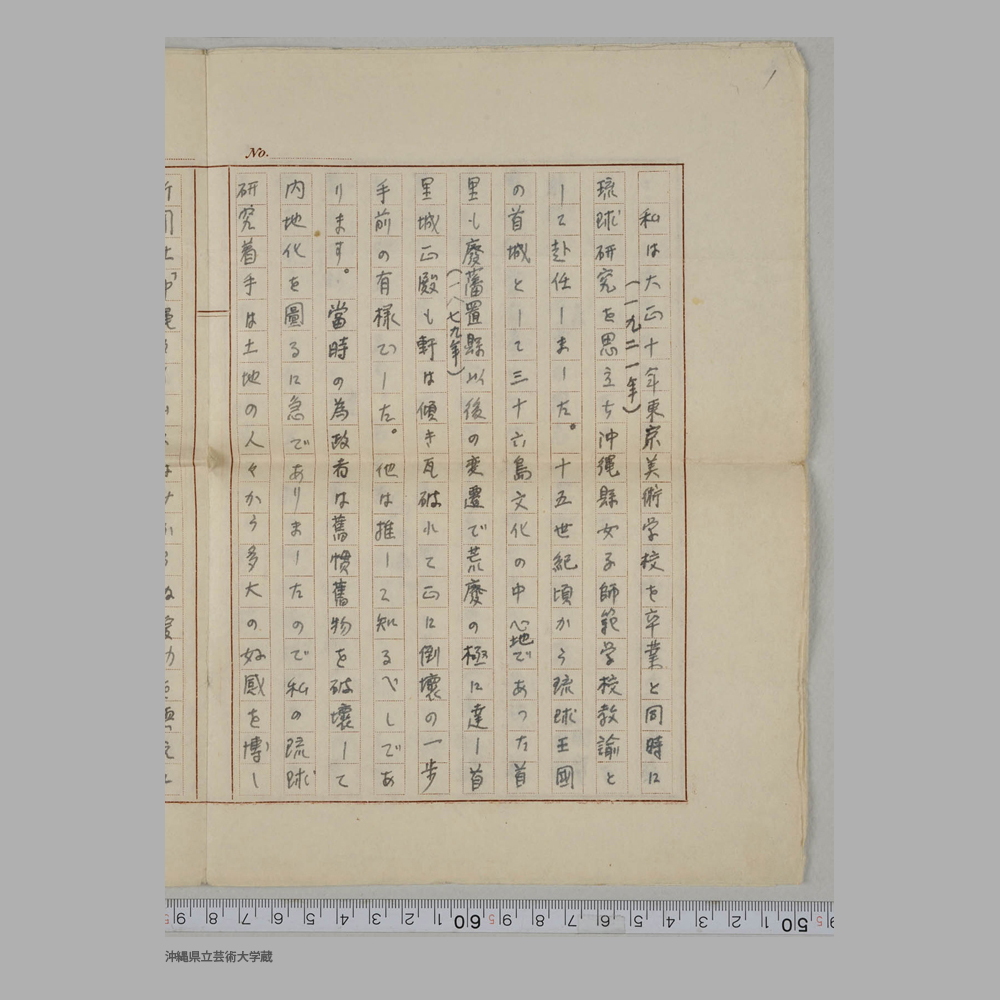 1
No.
私は大正十年東京美術学校を卒業と同時に
(一九二一年)
琉球研究を思立ち沖縄縣女子師範学校教諭と
して赴任しました。十五世紀頃から琉球王國
の首城として三十六島文化の中心地であった首
里も廢藩置縣以後の変遷で荒廢の極に達し首
(一八七九年)
里城正殿も軒は傾き瓦破れて正に倒壊の一歩
手前の有様でした。他は推して知るべしであ
ります。當時の為政者は舊慣舊物を破壊して
内地化を圖るに急でありましたので私の琉球
研究着手は土地の人々から多大の好感を博し
沖縄県立芸術大学蔵